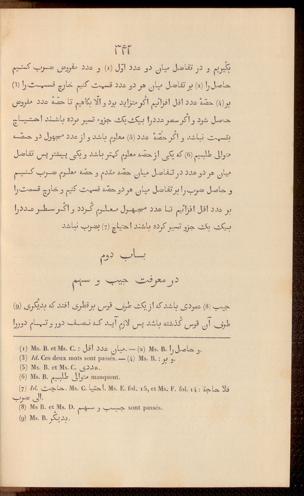 ۱۳۴۲
بگیریم و در تفاضل میان دو عدد اول (1) و عدد مفروض ضرب کنیم
حاصل را (2) بر تفاضل میان هر دو عدد قسمت کنیم خارج قسمت را (3)
بر (4) حصّهٔ عدد اقل افزائیم اگر متزاید بود و الّا بکاهیم تا حصّهٔ عدد مفروض
حاصل شود و اگر سطر عدد را بیک یک جزوء تمیز برده باشند احتیاج
بقسمت نباشد و اگر حصّهٔ عدد (5) معلوم باشد و از عدد مجهول دو حصّه
متوالی طلبیم (6) که یکی از حصّه معلوم کمتر باشد و یکی بیشتر پس تفاضل
میان هر دو عدد در تفاضل میان حصّه مقدم و حصّه معلوم ضرب کنیم
و حاصل ضرب را بر تفاضل میان هر دو حصّه قسمت کنیم و خارج قسمت را
بر عدد اقل افزائیم تا عدد مجهول معلوم گردد و اگر سطر عدد را
بیک یک جزو تمیز کرده باشند احتیاج (7) بضرب نباشد
باب دوم
در معرفت جیب و سهم
جیب (8) عمودی باشد که از یک طرف قوس بر قطری افتد که بدیگری (9)
طرف آن قوس گذشته باشد پس لازم آید که نصف دور و تمام دور را
(1) Ms. B. et Ms. C. : میان عدد اقل. — (2) Ms. B. و حاصل را.
(3) Id. Ces deux mots sont passés. — (4) Ms. B. : و بر.
(5) Ms. B. et Ms. C. عددی.
(6) Ms. B. متوالی طلبیم manquent.
(7) Id. حاجت. Ms. C. احتیا. Ms. E. fol. 15, et Ms. F. fol. 14 : فلا حاجة
الی ضرب.
(8) Ms. B. et Ms. D. جیب و سهم sont passés.
(9) Ms. B. بدیگر.